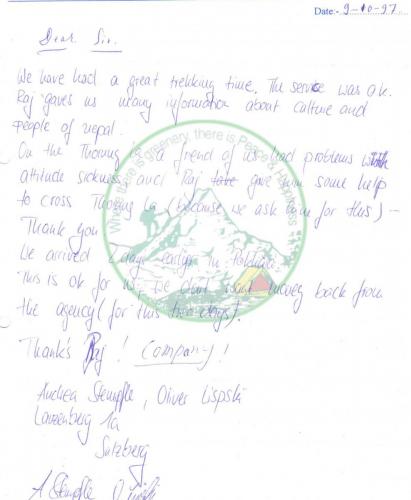 Date:- 9-10-97
Dear Sir.
We have had a great trekking time. The service was ok.
Raj gaves us many information about culture and
people of nepal.
On the Thorung a friend of us had problems with
attitude sickness and Raj take give him some help
to cross Thorung La (because we ask him for this) -
Thank you
We arrived 2 days early in
This is ok for us, we don't want money back from
the agency (for this two days).
Thank's Raj ! Company !
Andrea Stempfle, Oliver Lispski
Lanzenberg 1a
Sulzberg
A Stempfle
Where there is greenery, there is Peace & Happiness